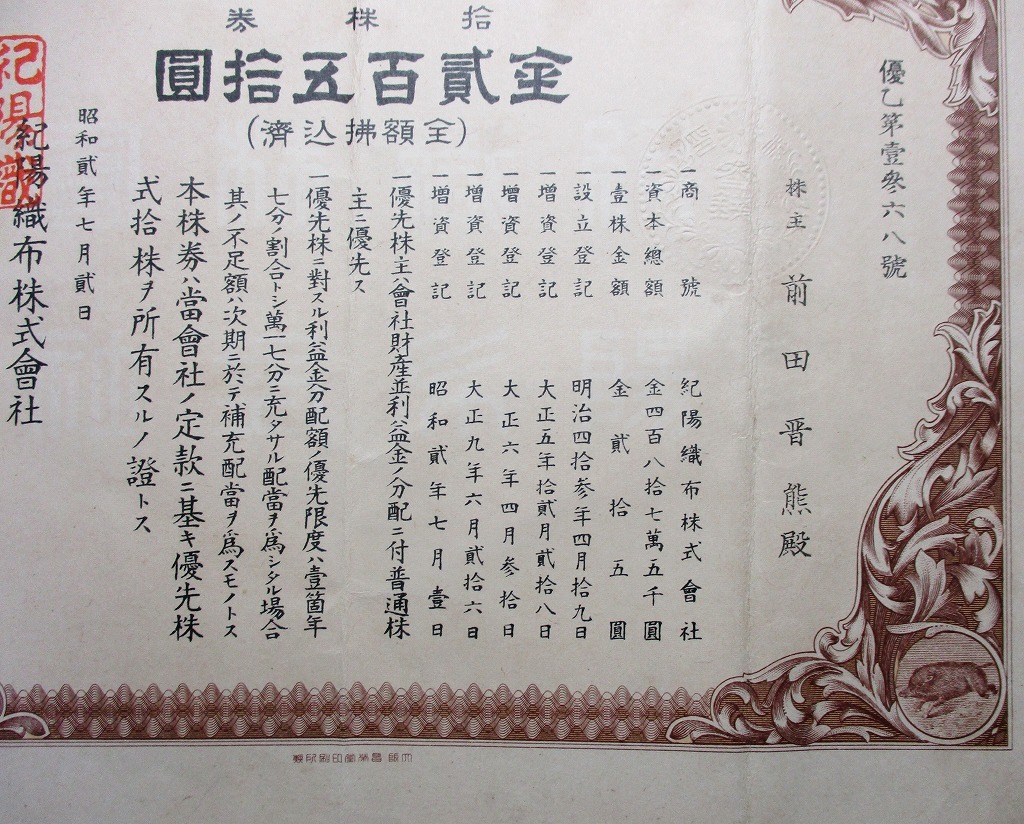 拾株券
金貳百五拾圓
(全額拂込濟)
優乙第壹参六八號
株主 前田晋熊殿
一商號 紀陽織布株式會社
一資本總額 金四百八拾七萬五千圓
一壹株金額 金貳拾五圓
一設立登記 明治四拾参年四月拾九日
一增資登記 大正五年拾貳月貳拾八日
一增資登記 大正六年四月参拾日
一增資登記 大正九年六月貳拾六日
一增資登記 昭和貳年七月壹日
一優先株主ハ會社財產並利益金ノ分配ニ付普通株
主ニ優先ス
一優先株ニ對スル利益金分配額ノ優先限度ハ壹箇年
七分ノ割合トシ萬一七分ニ充タサル配當ヲ爲シタル場合
其ノ不足額ハ次期ニ於テ補充配當ヲ爲スモノトス
本株券ハ當會社ノ定款ニ基キ優先株
式拾株ヲ所有スルノ證トス
昭和貳年七月貳日
紀陽織布株式會社
紀陽織
大阪 昌榮堂印刷所製